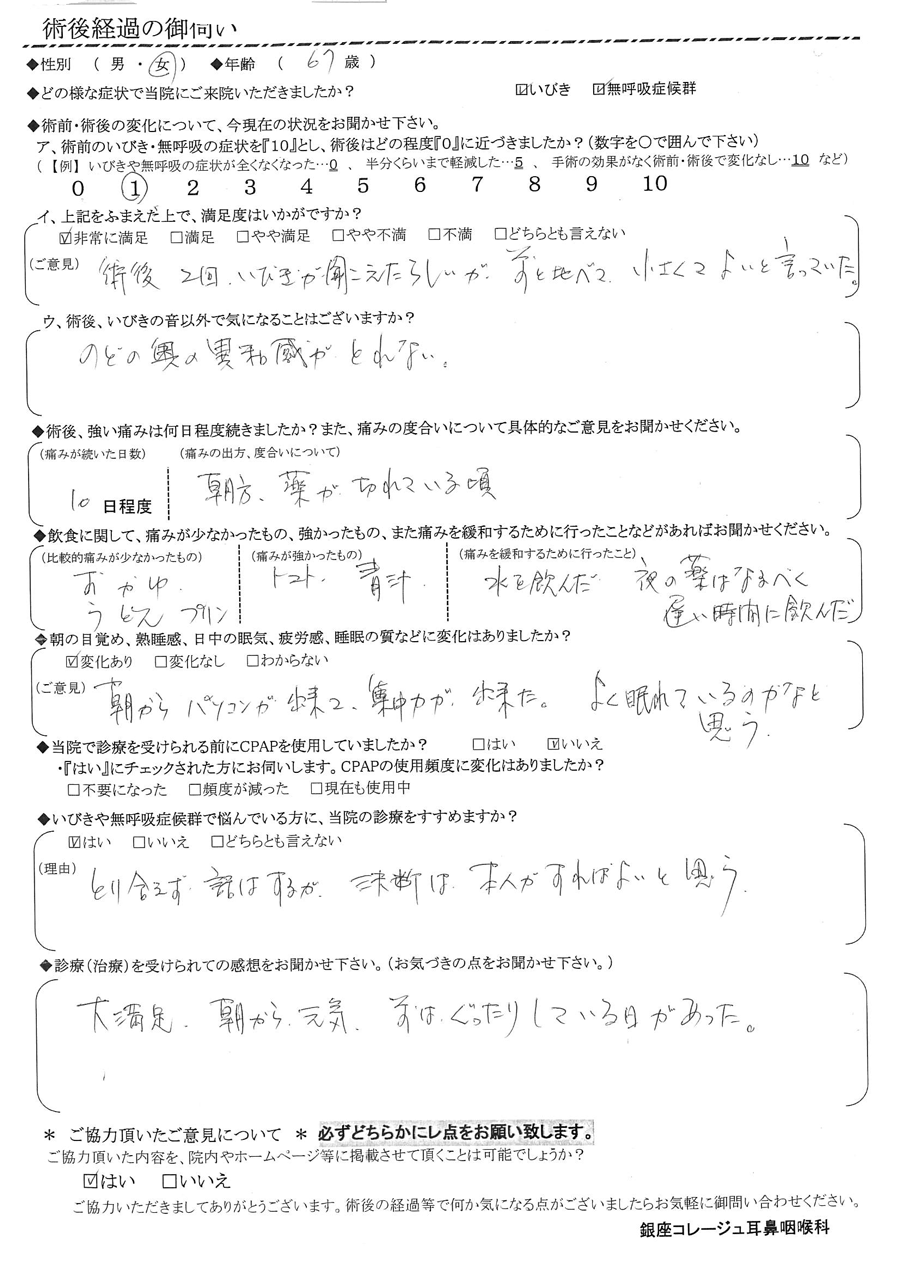 術後経過の御伺い
◆性別 ( 男 ・ 女 ) ◆年齢 ( 67 歳 )
◆どの様な症状で当院にご来院いただきましたか? ☑いびき ☑無呼吸症候群
◆術前・術後の変化について、今現在の状況をお聞かせ下さい。
ア、術前のいびき・無呼吸の症状を『10』とし、術後はどの程度『0』に近づきましたか?(数字を○で囲んで下さい)
(【例】いびきや無呼吸の症状が全くなくなった…0 、 半分くらいまで軽減した…5 、 手術の効果がなく術前・術後で変化なし…10 など)
0 1 2 3 4 5 6 7 8 9 10
イ、上記をふまえた上で、満足度はいかがですか?
☑非常に満足 □満足 □やや満足 □やや不満 □不満 □どちらとも言えない
(ご意見) 術後 2回、いびきが聞こえたらしいが、前と比べて、小さくてよいと言っていた。
ウ、術後、いびきの音以外で気になることはございますか?
のどの奥の異和感がとれない。
◆術後、強い痛みは何日程度続きましたか?また、痛みの度合いについて具体的なご意見をお聞かせください。
(痛みが続いた日数) (痛みの出方、度合いについて)
10 日程度 朝方、薬が切れている頃
◆飲食に関して、痛みが少なかったもの、強かったもの、また痛みを緩和するために行ったことなどがあればお聞かせください。
(比較的痛みが少なかったもの) (痛みが強かったもの) (痛みを緩和するために行ったこと)
おかゆ トマト、青汁 水を飲んだ 夜の薬はなるべく
うどん プリン 遅い時間に飲んだ
◆朝の目覚め、熟睡感、日中の眠気、疲労感、睡眠の質などに変化はありましたか?
☑変化あり □変化なし □わからない
(ご意見) 朝からパソコンが出来て、集中力が出来た。 よく眠れているのかなと
思う。
◆当院で診療を受けられる前にCPAPを使用していましたか? □はい ☑いいえ
・『はい』にチェックされた方にお伺いします。CPAPの使用頻度に変化はありましたか?
□不要になった □頻度が減った □現在も使用中
◆いびきや無呼吸症候群で悩んでいる方に、当院の診療をすすめますか?
☑はい □いいえ □どちらとも言えない
(理由) とり合えず 話はするが、決断は、本人がすればよいと思う。
◆診療(治療)を受けられての感想をお聞かせ下さい。(お気づきの点をお聞かせ下さい。)
大満足、朝から、元気、前は、ぐったりしている日があった。
＊ ご協力頂いたご意見について ＊ 必ずどちらかにレ点をお願い致します。
ご協力頂いた内容を、院内やホームページ等に掲載させて頂くことは可能でしょうか?
☑はい □いいえ
ご協力いただきましてありがとうございます。術後の経過等で何か気になる点がございましたらお気軽に御問い合わせください。
銀座コレージュ耳鼻咽喉科